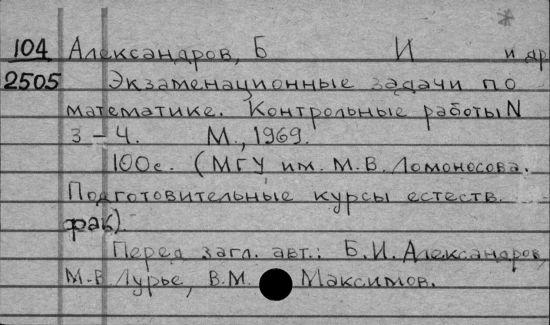 104 Александров, Б И и др
2505 Экзаменационные задачи по
математике. Контрольные работы N
3-4. М., 1969.
100с. (МГУ им. М.В. Ломоносова.
Подготовительные курсы естеств.
фак).
Перед загл. авт.: Б.И. Александров,
М.В Лурье, В.М. Максимов.